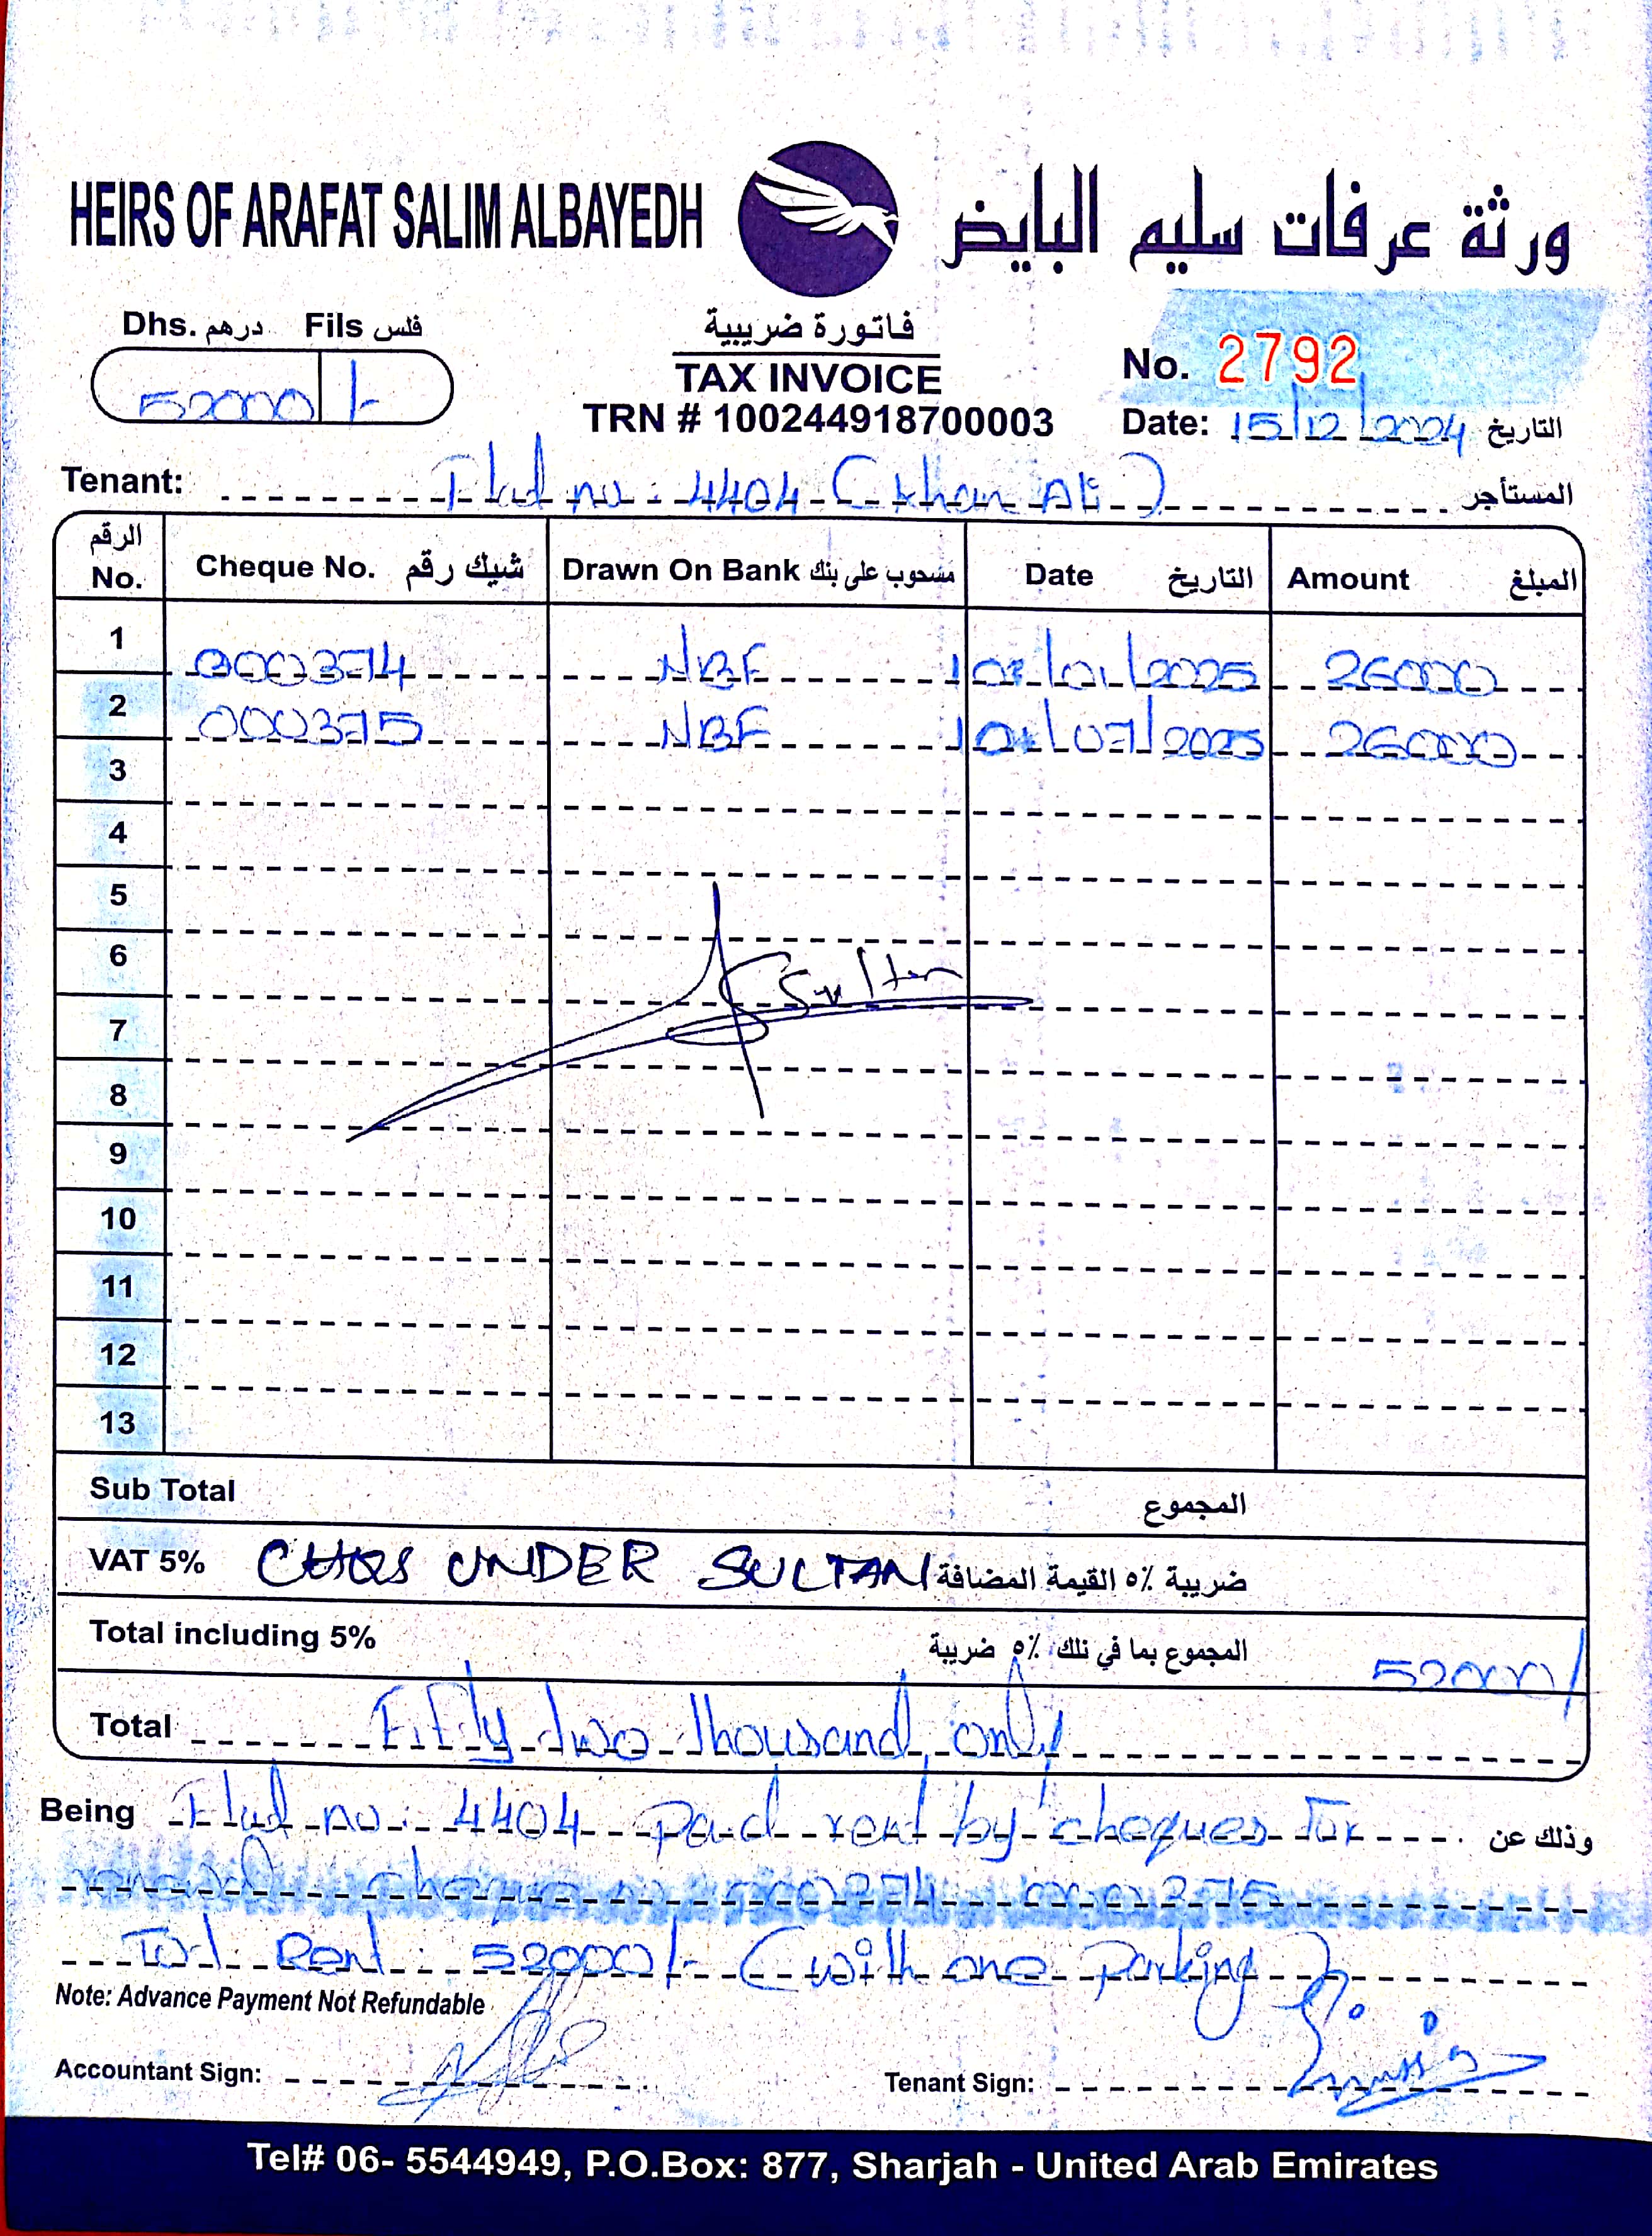 HEIRS OF ARAFAT SALIM ALBAYEDH
ورثة عرفات سليم البايض
Dhs. درهم Fils فلس
52000 /-
فاتورة ضريبية
TAX INVOICE
TRN # 100244918700003
No. 2792
Date: 15/12/2024 التاريخ
Tenant: Flat no: 4404 (Khan Ali) المستأجر
الرقم No. Cheque No. شيك رقم Drawn On Bank مسحوب على بنك Date التاريخ Amount المبلغ
1 000374 NBF /01/2025 26000
2 000375 NBF /07/2025 26000
3
4
5
6
Sultan
7
8
9
10
11
12
13
Sub Total المجموع
VAT 5% CHQS UNDER SULTAN ضريبة ٥٪ القيمة المضافة
Total including 5% المجموع بما في ذلك ٥٪ ضريبة 52000/
Total Fifty two thousand only
Being Flat no: 4404 Paid rent by cheques for وذلك عن
renewal cheque no 000374 000375
Total Rent: 52000/- (with one Parking)
Note: Advance Payment Not Refundable
Accountant Sign:
Tenant Sign:
Tel# 06- 5544949, P.O.Box: 877, Sharjah - United Arab Emirates